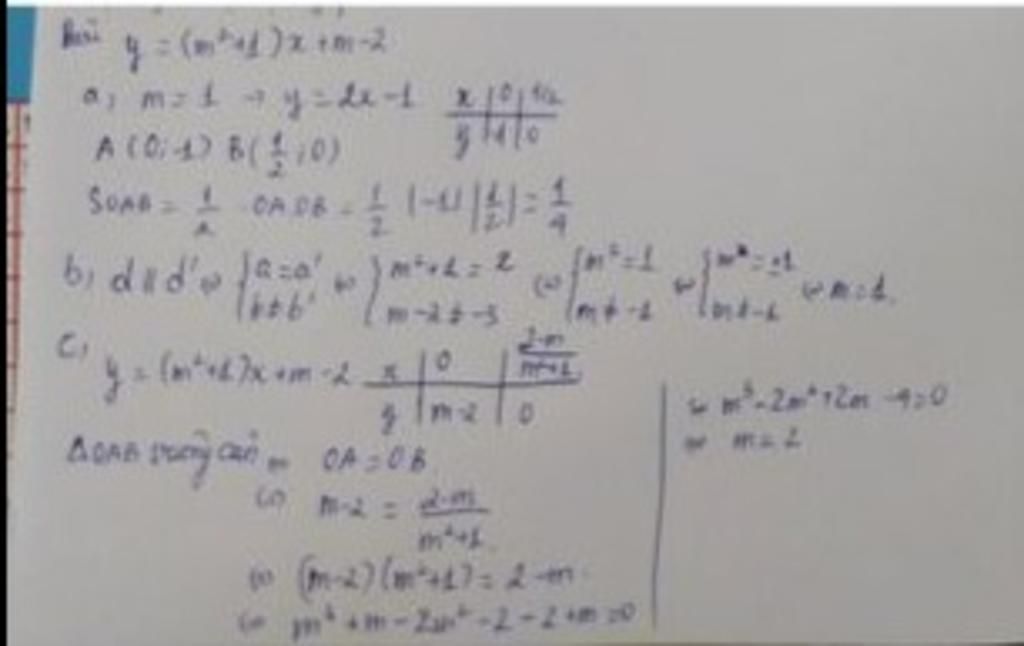 Bài y = (m²+1)x + m-2
a, m = 1 → y = 2x - 1 x | 0 | 1/2
y | -1 | 0
A(0;-1) B(1/2; 0)
SOAB = 1/2 OA.OB = 1/2 |-1| |1/2| = 1/4
b, d // d' ⇔ { a = a' b ≠ b' ⇔ { m²+1 = 2 m-2 ≠ -3 ⇔ { m² = 1 m ≠ -1 ⇔ { m = ±1 m ≠ -1 ⇔ m = 1.
c, y = (m²+1)x + m - 2 x | 0 | 2-m/m²+1
y | m-2 | 0
ΔOAB vuông cân ⇔ OA = OB
⇔ m-2 = 2-m/m²+1
⇔ (m-2)(m²+1) = 2-m
⇔ m³ + m - 2m² - 2 - 2 + m = 0
⇔ m³ - 2m² + 2m - 4 = 0
⇔ m = 2